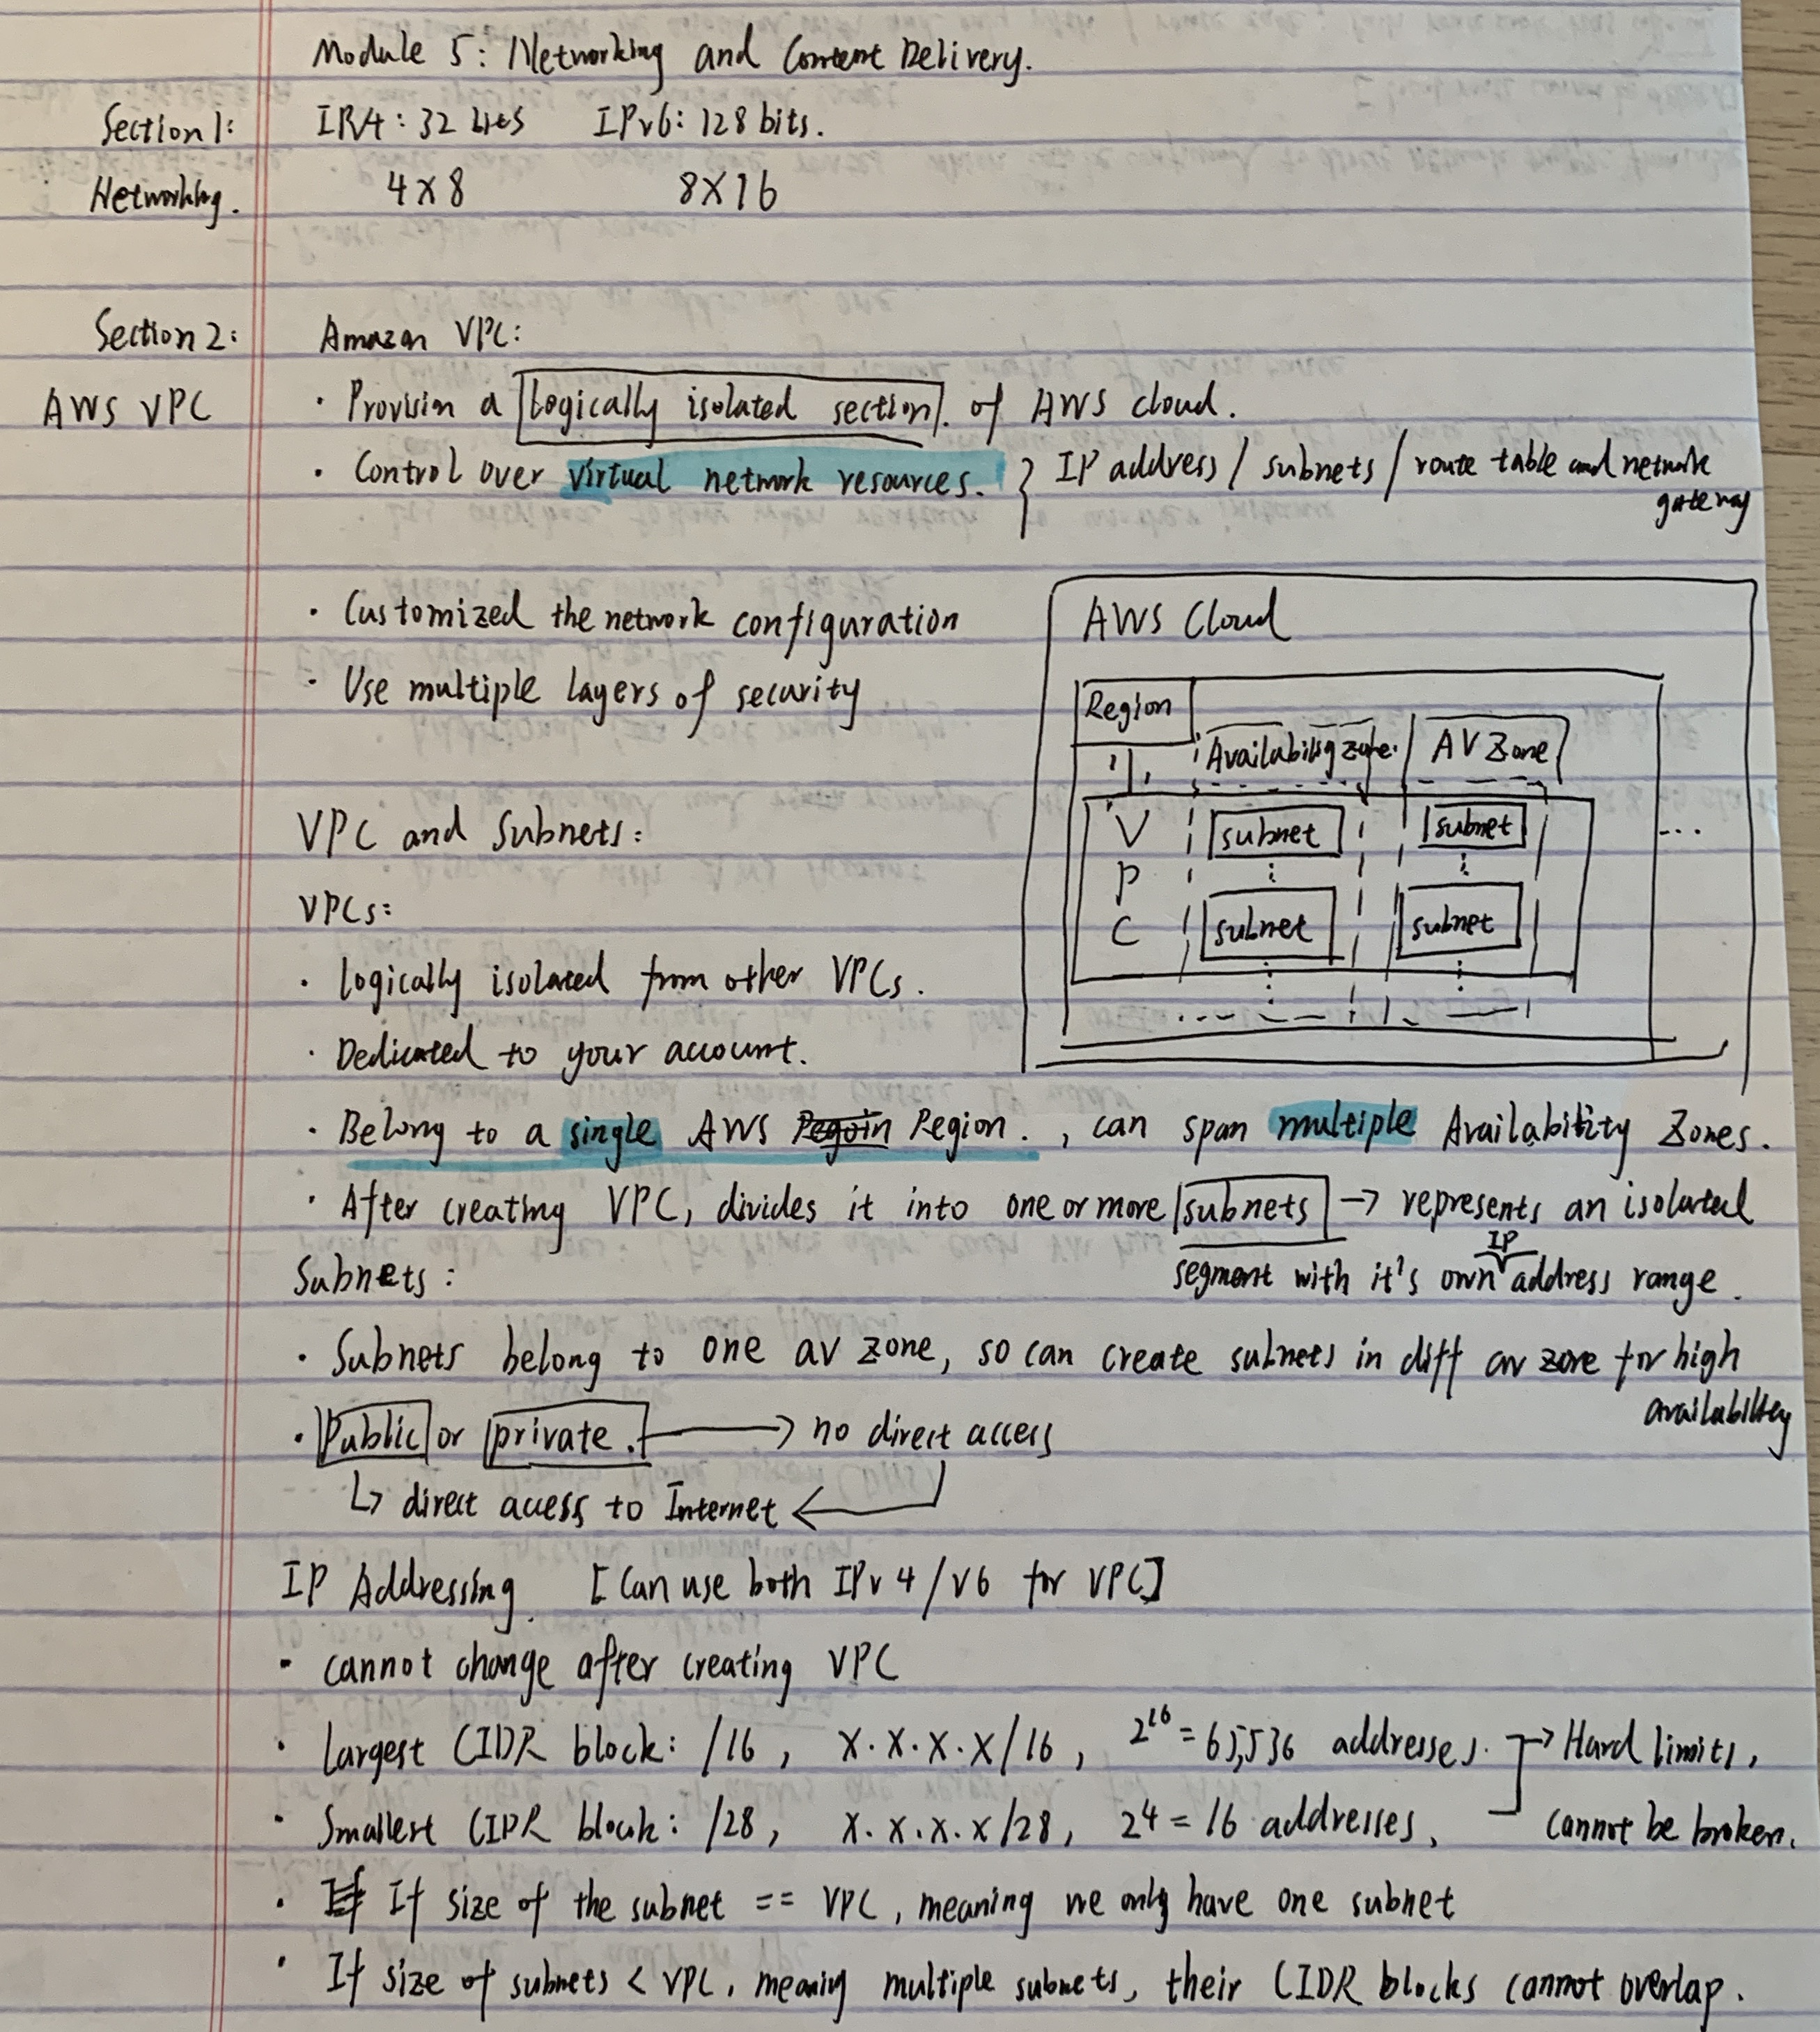 Module 5: Networking and Content Delivery.
Section 1: IPv4: 32 bits IPv6: 128 bits.
Networking. 4X8 8X16
Section 2: Amazon VPC:
AWS VPC · Provision a logically isolated section. of AWS cloud.
· Control over virtual network resources. } IP address / subnets / route table and network
gateway
· Customized the network configuration
· Use multiple layers of security
AWS Cloud
Region
Availability zone. AV Zone
VPC
subnet subnet
subnet subnet
...
VPC and Subnets:
VPCs:
· logically isolated from other VPCs.
· Dedicated to your account.
· Belong to a single AWS Regoin Region. , can span multiple Availability Zones.
· After creating VPC, divides it into one or more subnets → represents an isolated
segment with it's own IP address range.
Subnets:
· Subnets belong to one av zone, so can create subnets in diff av zone for high
availability
· Public or private. → no direct access
↳ direct access to Internet ←
IP Addressing. [Can use both IPv4/v6 for VPC]
· cannot change after creating VPC
· largest CIDR block: /16, X.X.X.X/16, 2^16 = 65,536 addresses. → Hard limits,
· Smallest CIDR block: /28, X.X.X.X/28, 2^4 = 16 addresses, cannot be broken.
· If If size of the subnet == VPC, meaning we only have one subnet
· If size of subnets < VPC, meaning multiple subnets, their CIDR blocks cannot overlap.